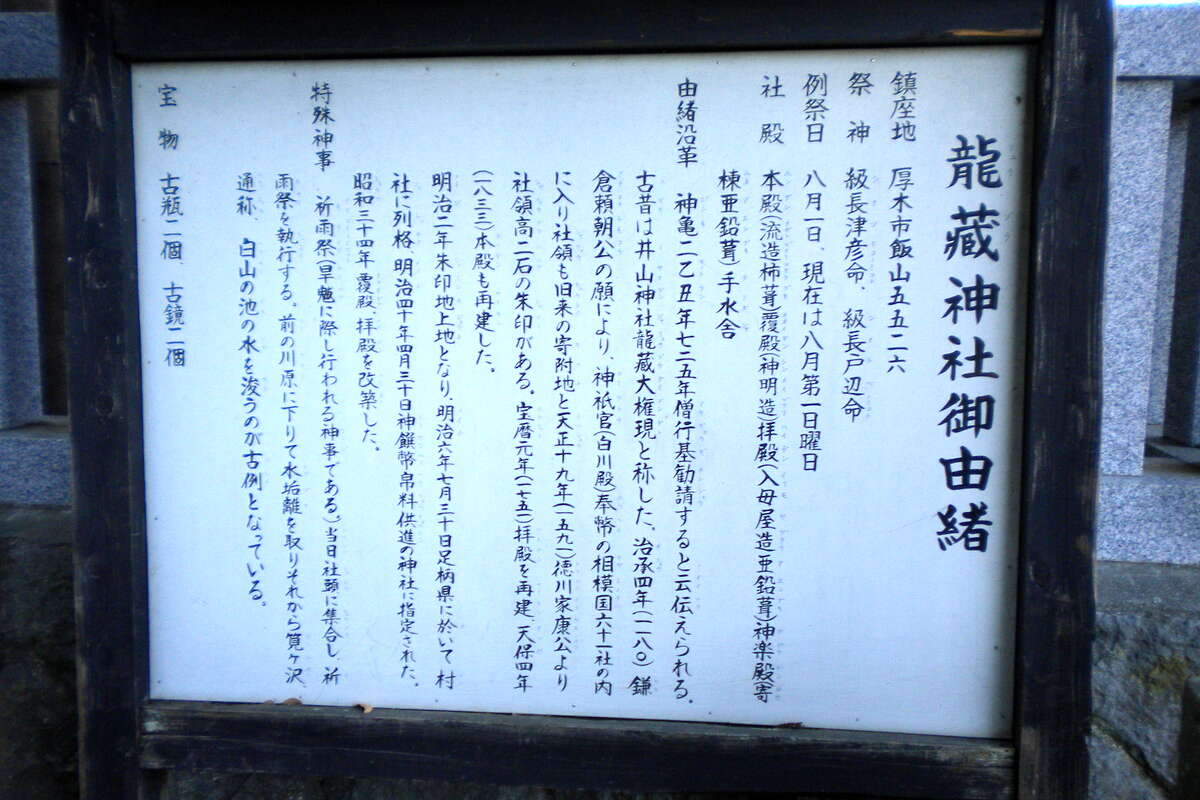 龍蔵神社御由緒
鎮座地 厚木市飯山五五二六
祭神 級長津彦命、級長戸辺命
例祭日 八月一日、現在は八月第一日曜日
社殿 本殿(流造柿葺)覆殿(神明造)拝殿(入母屋造亜鉛葺)神楽殿(寄
棟亜鉛葺)手水舎
由緒沿革 神亀二乙丑年七二五年僧行基勧請すると云伝えられる。
古昔は井山神社龍蔵大権現と称した、治承四年(一一八〇)鎌
倉頼朝公の願により、神祇官(白川殿)奉幣の相模国六十一社の内
に入り社領も旧来の寄附地と天正十九年(一五九一)徳川家康公より
社領高二石の朱印がある。宝暦元年(一七五一)拝殿を再建、天保四年
(一八三三)本殿も再建した。
明治二年朱印地上地となり、明治六年七月三十日足柄県に於いて村
社に列格、明治四十年四月三十日神饌幣帛料供進の神社に指定された。
昭和三十四年覆殿、拝殿を改築した。
特殊神事 祈雨祭(旱魃に際し行われる神事である)当日社頭に集合し、祈
雨祭を執行する。前の川原に下りて水垢離を取りそれから筧ヶ沢
通称、白山の池の水を浚うのが古例となっている。
宝物 古瓶一個、古鏡二個